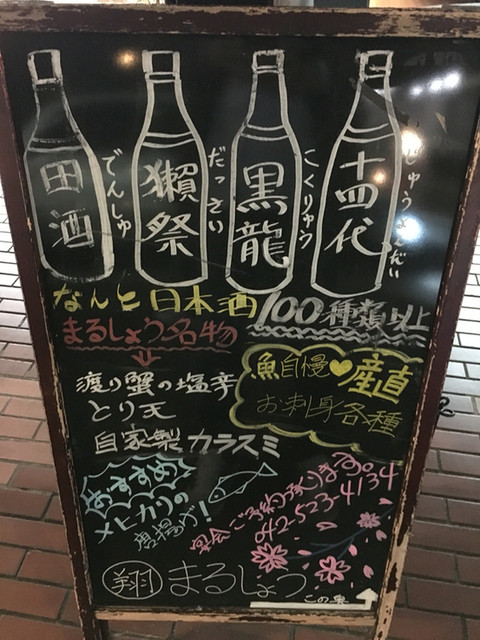 十四代
じゅうよんだい
黒龍
こくりゅう
獺祭
だっさい
田酒
でんしゅ
なんと日本酒100種類以上
まるしょう名物
渡り蟹の塩辛
とり天
自家製カラスミ
魚自慢産直
お刺身各種
おすすめ
メヒカリの
唐揚げ!
宴会ご予約承ります。
042-523-4134
翔まるしょう
この奥